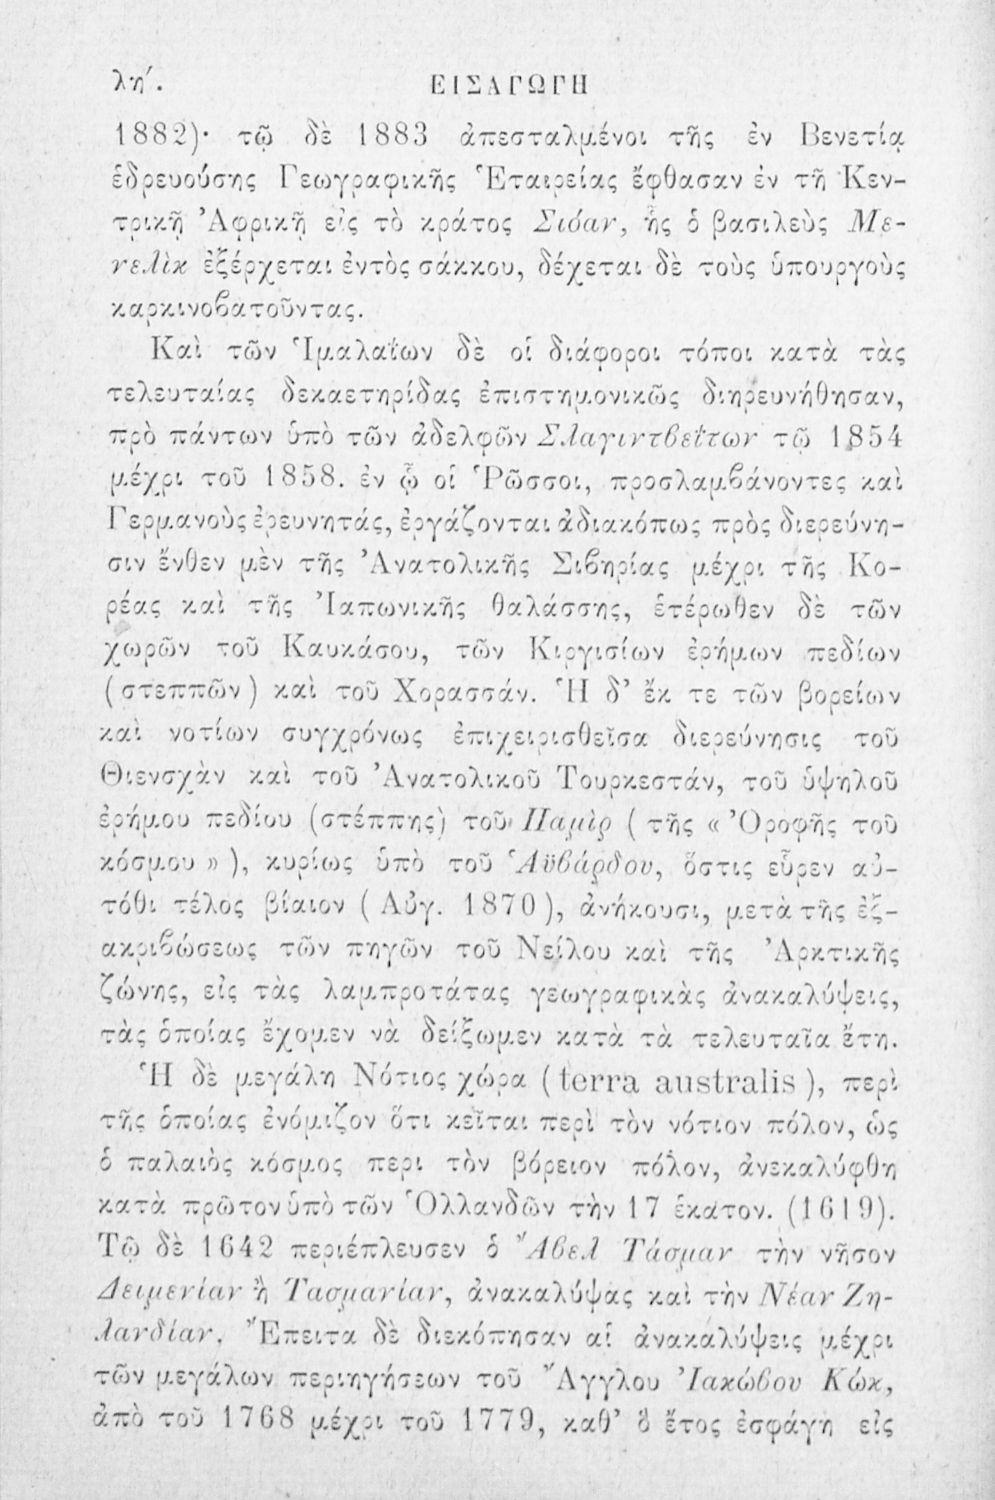 λη΄.
ΕΙΣΑΓΩΓΗ
1882)· τῷ δὲ 1883 ἀπεσταλμένοι τῆς ἐν Βενετίᾳ
ἑδρευούσης Γεωγραφικῆς Ἑταιρείας ἔφθασαν ἐν τῇ Κεν-
τρικῇ Ἀφρικῇ εἰς τὸ κράτος Σιόαν, ἧς ὁ βασιλεὺς Με-
νελὶκ ἐξέρχεται ἐντὸς σάκκου, δέχεται δὲ τοὺς ὑπουργοὺς
καρκινοβατοῦντας.
Καὶ τῶν Ἱμαλαΐων δὲ οἱ διάφοροι τόποι κατὰ τὰς
τελευταίας δεκαετηρίδας ἐπιστημονικῶς διηρευνήθησαν,
πρὸ πάντων ὑπὸ τῶν ἀδελφῶν Σλαγιντβεΐτων τῷ 1854
μέχρι τοῦ 1858. ἐν ᾧ οἱ Ῥῶσσοι, προσλαμβάνοντες καὶ
Γερμανοὺς ἐρευνητάς, ἐργάζονται ἀδιακόπως πρὸς διερεύνη-
σιν ἔνθεν μὲν τῆς Ἀνατολικῆς Σιβηρίας μέχρι τῆς Κο-
ρέας καὶ τῆς Ἰαπωνικῆς θαλάσσης, ἑτέρωθεν δὲ τῶν
χωρῶν τοῦ Καυκάσου, τῶν Κιργισίων ἐρήμων πεδίων
(στεππῶν) καὶ τοῦ Χορασσάν. Ἡ δ' ἔκ τε τῶν βορείων
καὶ νοτίων συγχρόνως ἐπιχειρισθεῖσα διερεύνησις τοῦ
Θιενσχὰν καὶ τοῦ Ἀνατολικοῦ Τουρκεστάν, τοῦ ὑψηλοῦ
ἐρήμου πεδίου (στέππης) τοῦ Παμὶρ (τῆς «Ὀροφῆς τοῦ
κόσμου»), κυρίως ὑπὸ τοῦ Ἀϋβάρδου, ὅστις εὗρεν αὐ-
τόθι τέλος βίαιον (Αὐγ. 1870), ἀνήκουσι, μετὰ τῆς ἐξ-
ακριβώσεως τῶν πηγῶν τοῦ Νείλου καὶ τῆς Ἀρκτικῆς
ζώνης, εἰς τὰς λαμπροτάτας γεωγραφικὰς ἀνακαλύψεις,
τὰς ὁποίας ἔχομεν νὰ δείξωμεν κατὰ τὰ τελευταῖα ἔτη.
Ἡ δὲ μεγάλη Νότιος χώρα (terra australis), περὶ
τῆς ὁποίας ἐνόμιζον ὅτι κεῖται περὶ τὸν νότιον πόλον, ὡς
ὁ παλαιὸς κόσμος περι τὸν βόρειον πόλον, ἀνεκαλύφθη
κατὰ πρῶτον ὑπὸ τῶν Ὁλλανδῶν τὴν 17 ἑκατον. (1619).
Τῷ δὲ 1642 περιέπλευσεν ὁ Ἄβελ Τάσμαν τὴν νῆσον
Δειμενίαν ἢ Τασμανίαν, ἀνακαλύψας καὶ τὴν Νέαν Ζη-
λανδίαν. Ἔπειτα δὲ διεκόπησαν αἱ ἀνακαλύψεις μέχρι
τῶν μεγάλων περιηγήσεων τοῦ Ἄγγλου Ἰακώβου Κώκ,
ἀπὸ τοῦ 1768 μέχρι τοῦ 1779, καθ' ὃ ἔτος ἐσφάγη εἰς